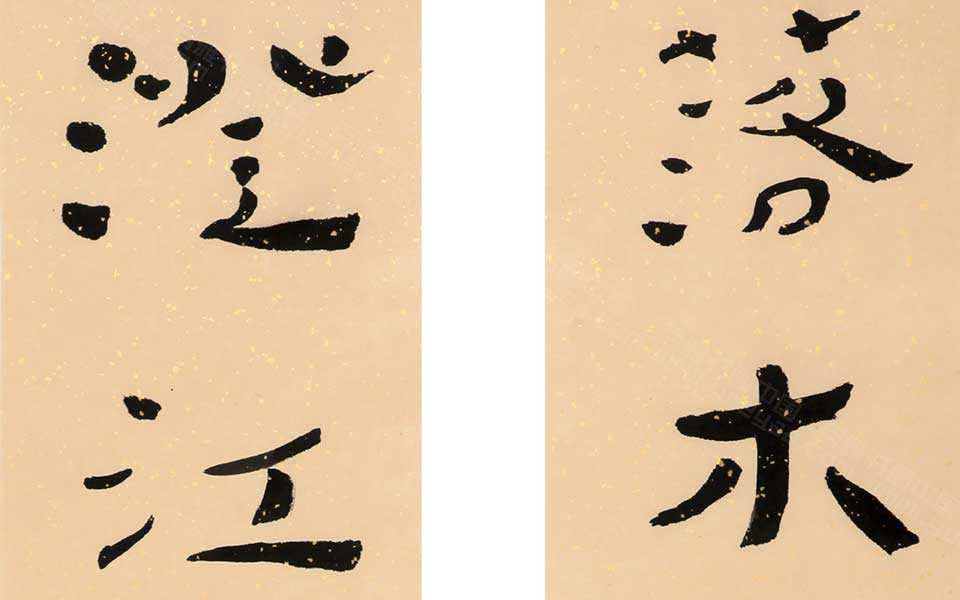 落木
澄江